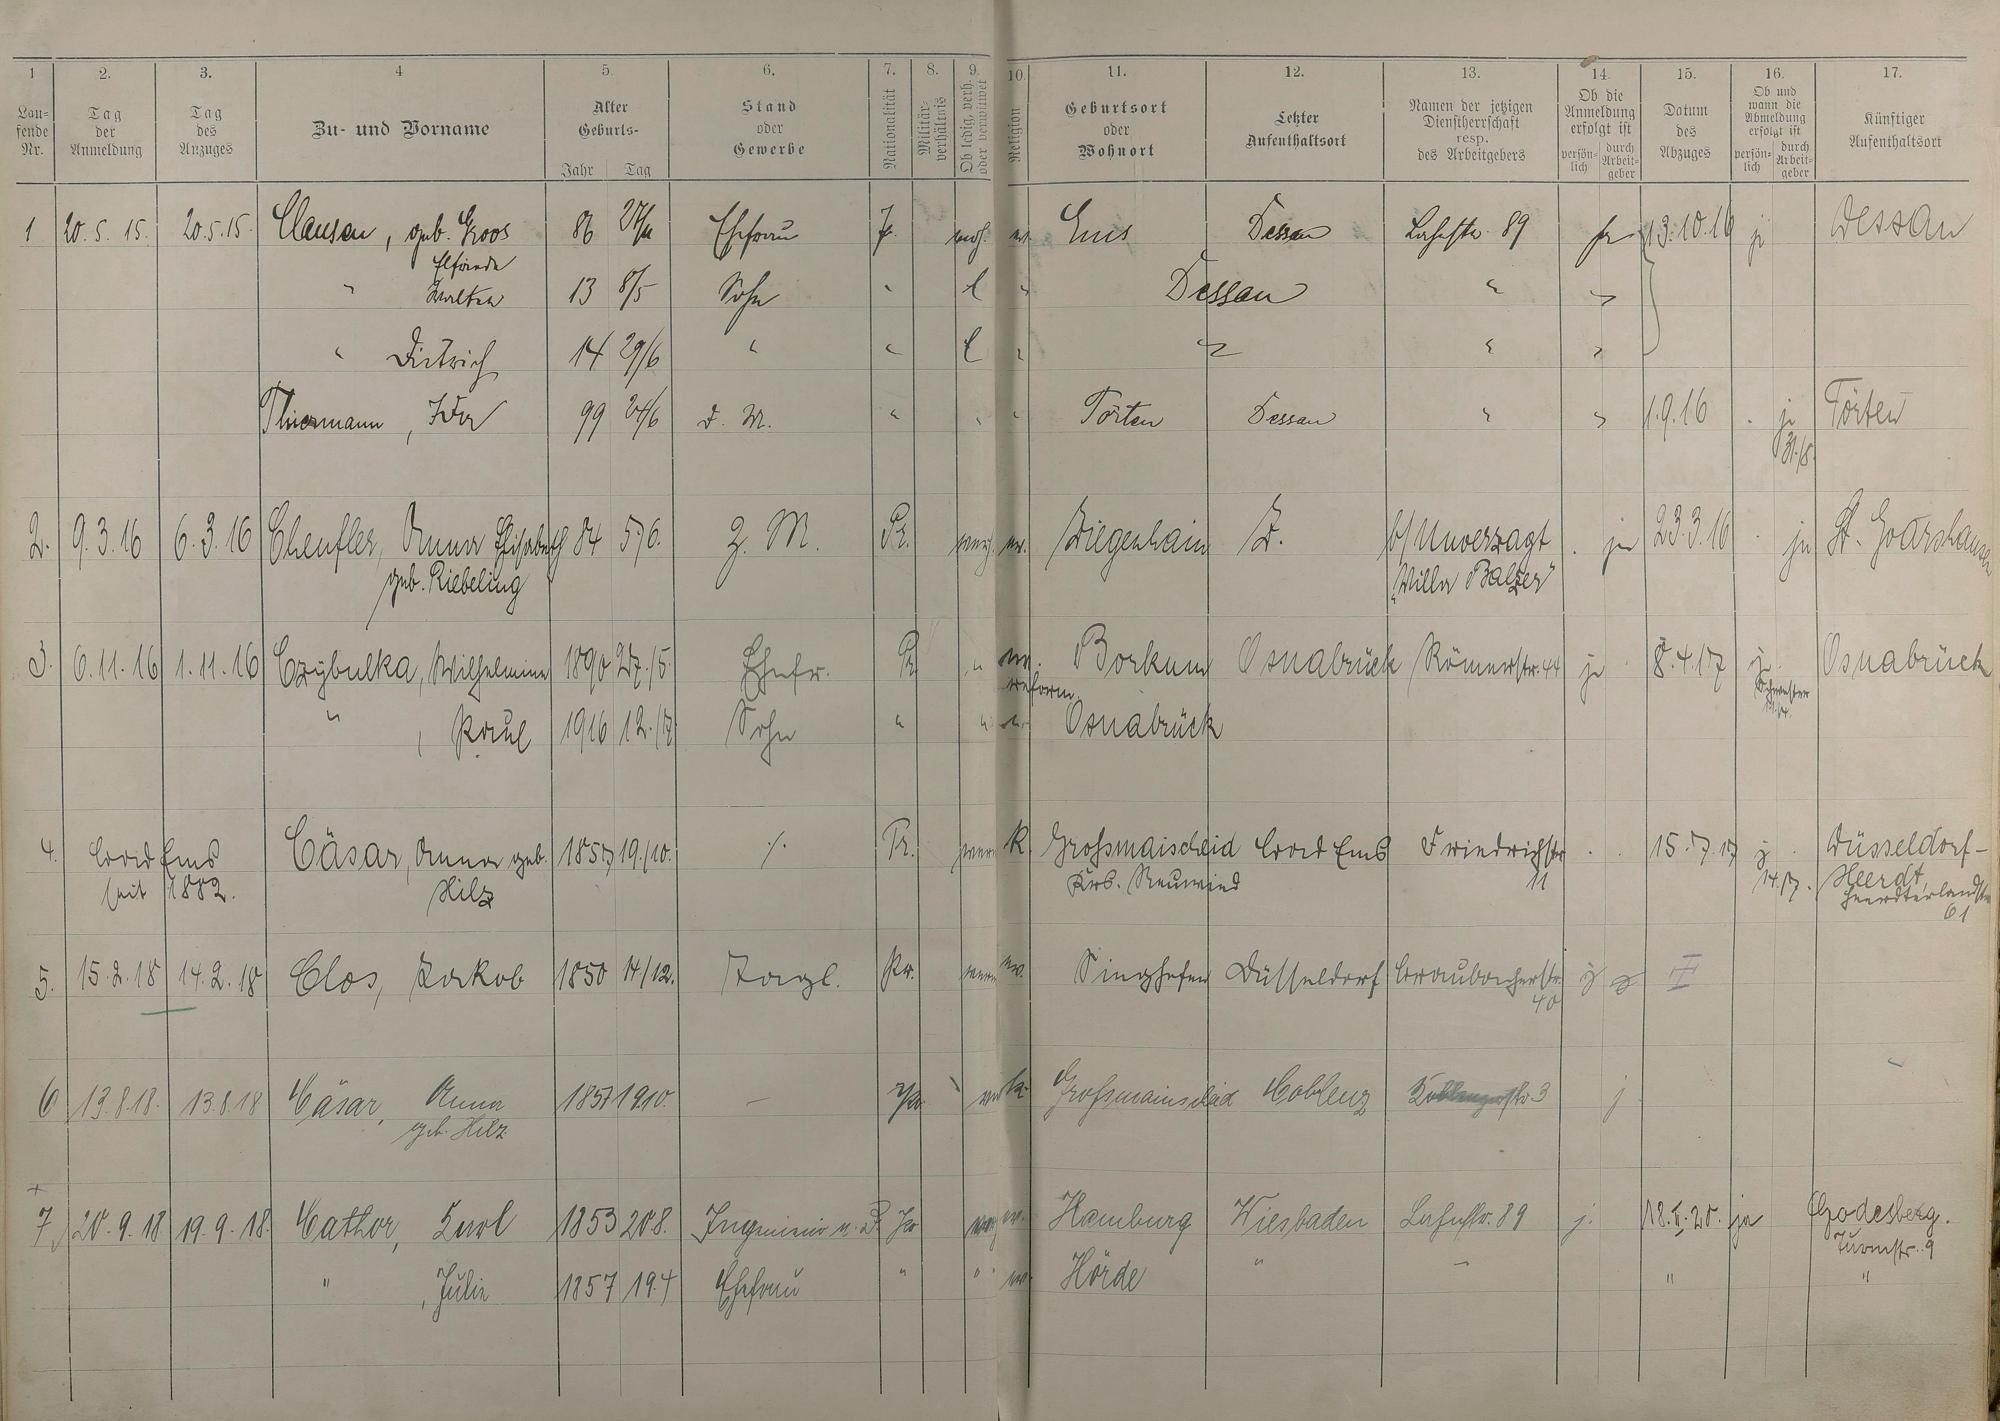 1 2. 3. 4 5. 6. 7. 8. 9. 10. 11. 12. 13. 14. 15. 16. 17.
Lau-
fende
Nr.
Tag
der
Anmeldung
Tag
des
Anzuges
Zu- und Vorname
Alter
Geburts-
Jahr Tag
Stand
oder
Gewerbe
Nationalität
Militär-
verhältnis
Ob ledig, verh.
oder verwitwet
Religion
Geburtsort
oder
Wohnort
Letzter
Aufenthaltsort
Namen der jetzigen
Dienstherrschaft
resp.
des Arbeitgebers
Ob die
Anmeldung
erfolgt ist
persön-
lich
durch
Arbeit-
geber
Datum
des
Abzuges
Ob und
wann die
Abmeldung
erfolgt ist
persön-
lich
durch
Arbeit-
geber
Künftiger
Aufenthaltsort
1 20.5.15. 20.5.15. Clausen, geb. Groos 86 Ehefrau Ems Dessau Lahnstr. 89 ja 13.10.16 ja Dessau
Elfriede
" Walter 13 8/5 Sohn " l " Dessau " "
" Dietrich 14 29/6 " " l " " " "
Thiermann, Ida 99 24/6 D. M. " " " Törten Dessau " " 1.9.16 ja Törten
31./8.
2. 9.3.16 6.3.16 Cheufler, Anna Elisabeth 84 5/6. Z. M. Pr. ev. Ziegenhain Z. b/ Unverzagt ja 23.3.16 ja St. Goarshausen
geb. Riebeling "Villa Balzer"
3. 6.11.16 1.11.16 Czybulka, Wilhelmine 1890 27./5. Ehefr. Pr. " ev. Borkum Osnabrück Römerstr. 44 ja 8.4.17 ja. Osnabrück
reform. Schwester
" , Paul 1916 12./12 Sohn " " " Osnabrück
4. Bad Ems Cäsar, Anna geb. 1857 19./10. ./. Pr. verw. k. Grossmaischeid Bad Ems Friedrichstr. 15.7.17 j. Düsseldorf-
seit 1882. Hilz Krs. Neuwied 11 14./7. Heerdt,
Heerdterlandstr.
61
5. 15.2.18 14.2.18 Clos, Jakob 1850 14/12. Tagl. Pr. verw. ev. Singhofen Düsseldorf Braubacherstr. j
40
6 13.8.18. 13.8.18 Cäsar, Anna 1857 19.10. — Pr. k. Grossmainscheid Coblenz 3 j
geb. Hilz
7. 20.9.18 19.9.18. Cathor, Karl 1853 20.8. Ingenieur a. D. Pr. ev. Hamburg Wiesbaden Lahnstr. 89 j. 18.5.20. ja Godesberg.
Turmstr. 9
" , Julie 1857 19.4 Ehefrau " " ev. Hörde " — " "